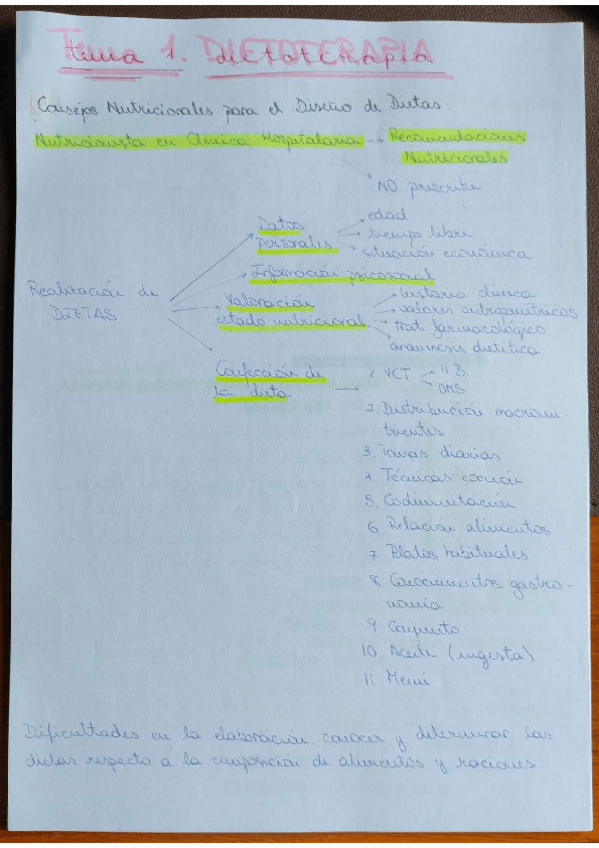 Tema 1. DIETOTERAPIA
Consejos Nutricionales para el Diseño de Dietas:
Nutricionista en Clínica Hospitalaria → Recomendaciones
Nutricionales
NO prescribe
Datos
personales
edad
tiempo libre
situación económica
Información psicosocial
Realización de
DIETAS
Valoración
estado nutricional
historia clínica
valores antropométricos
trat. farmacológico
anamnesis dietética
Confección de
la dieta
1. VCT
H B.
OMS
2. Distribución macronu-
trientes
3. Tomas diarias
4. Técnicas cocción
5. Codimentación
6. Relación alimentos
7. Platos habituales
8. Conocimientos gastro-
nomía
9. Conjunto
10. Aceite (ingesta)
11. Menú
Dificultades en la elaboración: conocer y determinar las
dietas respecto a la composición de alimentos y raciones